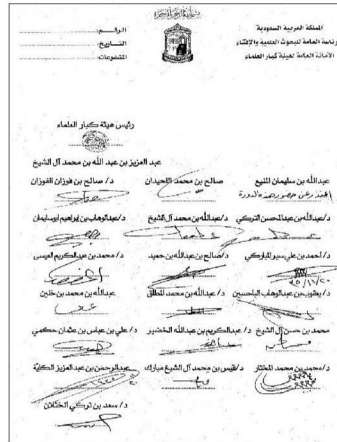 المملكة العربية السعودية
رئاسة العامة للبحوث العلمية والإفتاء
الأمانة العامة لهيئة كبار العلماء
الرقم:
التاريخ:
المشفوعات:
رئيس هيئة كبار العلماء
عبد العزيز بن عبد الله بن محمد آل الشيخ
عبدالله بن سليمان المنيع صالح بن محمد اللحيدان د/ صالح بن فوزان الفوزان
د/عبدالله بن عبدالمحسن التركي د/عبدالله بن محمد آل الشيخ د/عبدالوهاب بن إبراهيم أبوسليمان
د/أحمد بن علي سير المباركي د/صالح بن عبدالله بن حميد د/ محمد بن عبدالكريم العيسى
د/ يعقوب بن عبدالوهاب الباحسين د/عبدالله بن محمد المطلق عبدالله بن محمد بن خنين
محمد بن حسن آل الشيخ د/ عبدالكريم بن عبدالله الخضير د/ علي بن عباس بن عثمان حكمي
د/محمد بن محمد المختار د/قيس بن محمد آل الشيخ مبارك عبدالرحمن بن عبدالعزيز الكلية
د/ سعد بن تركي الخثلان